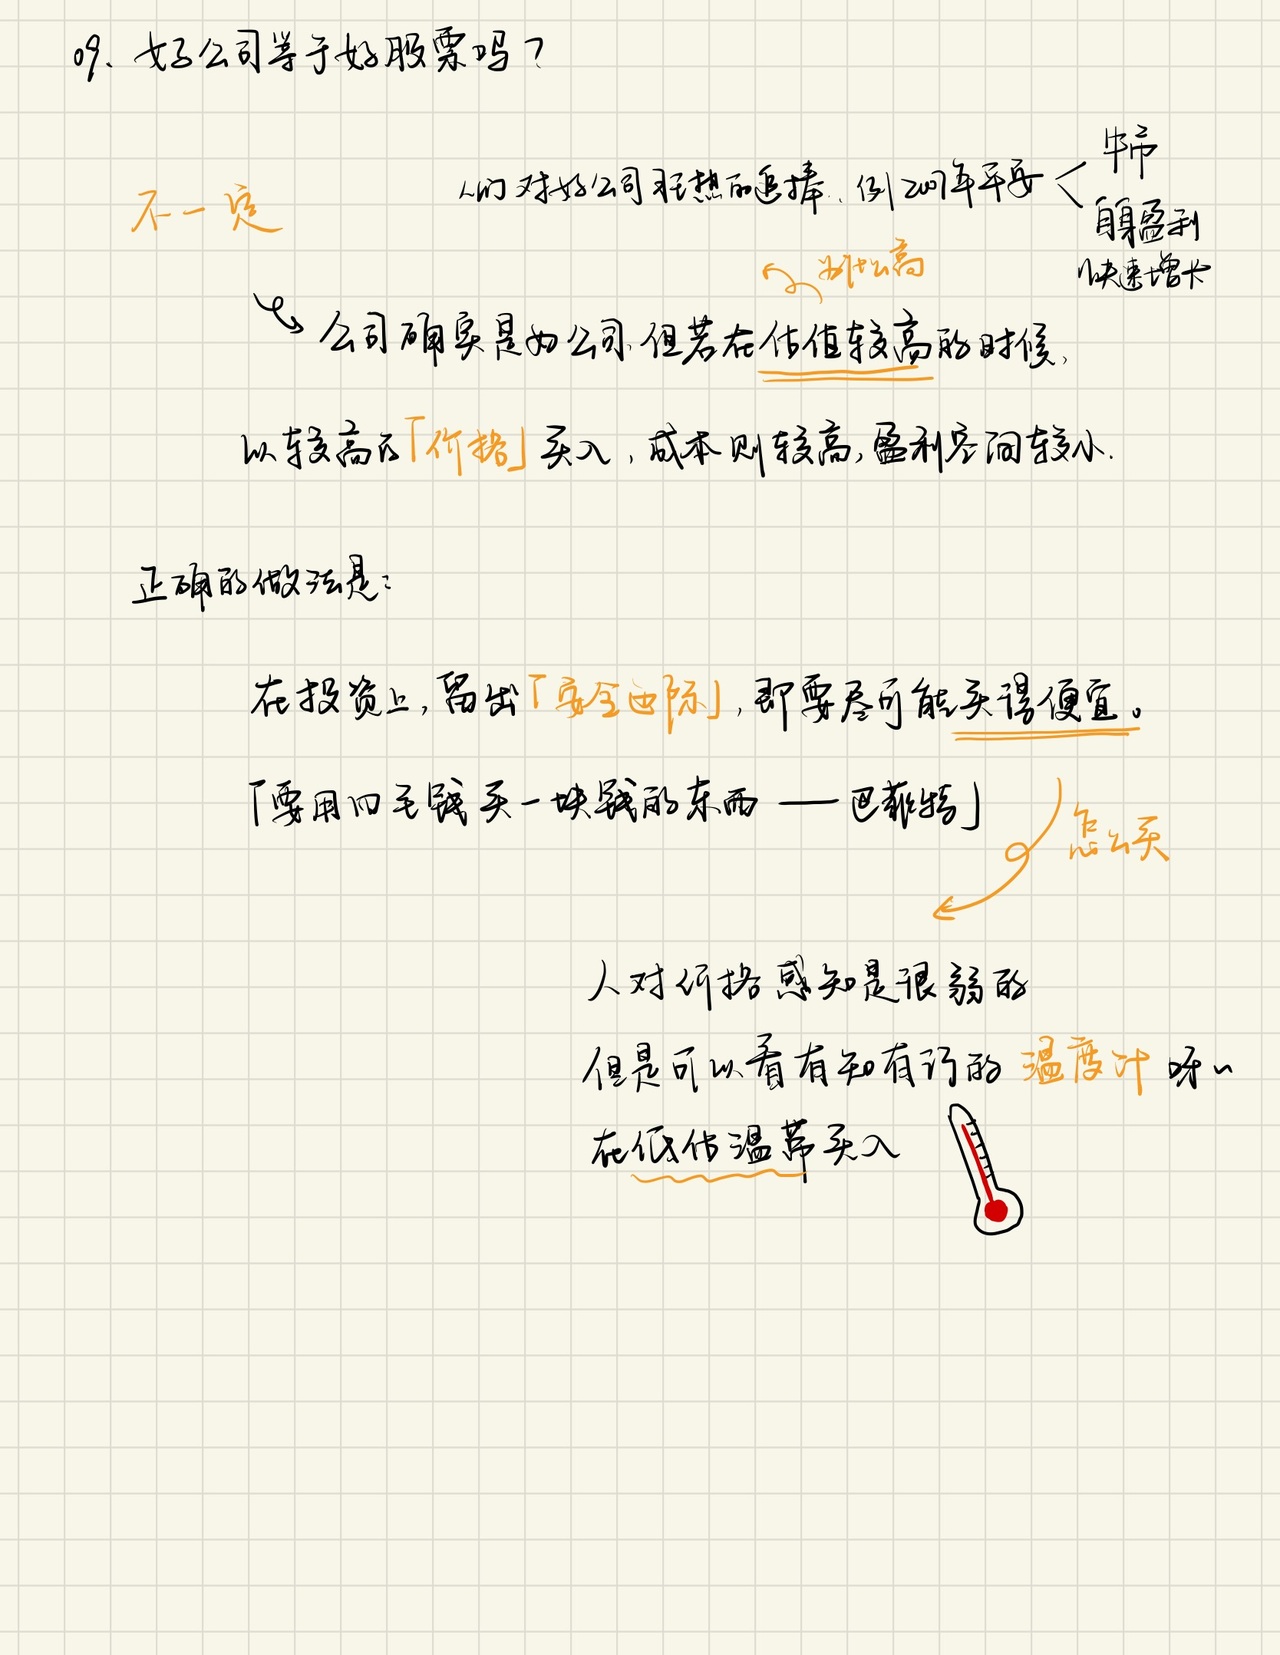 09. 好公司等于好股票吗?
不一定
人们对好公司狂热的追捧. 例2007年平安
牛市
自身盈利
快速增长
为什么高
公司确实是好公司, 但若在估值较高的时候,
以较高的「价格」买入, 成本则较高, 盈利空间较小.
正确的做法是:
在投资上, 留出「安全边际」, 即要尽可能买得便宜。
「要用四毛钱买一块钱的东西 —— 巴菲特」
怎么买
人对价格感知是很弱的
但是可以看有知有行的 温度计 呀~
在低估温带买入